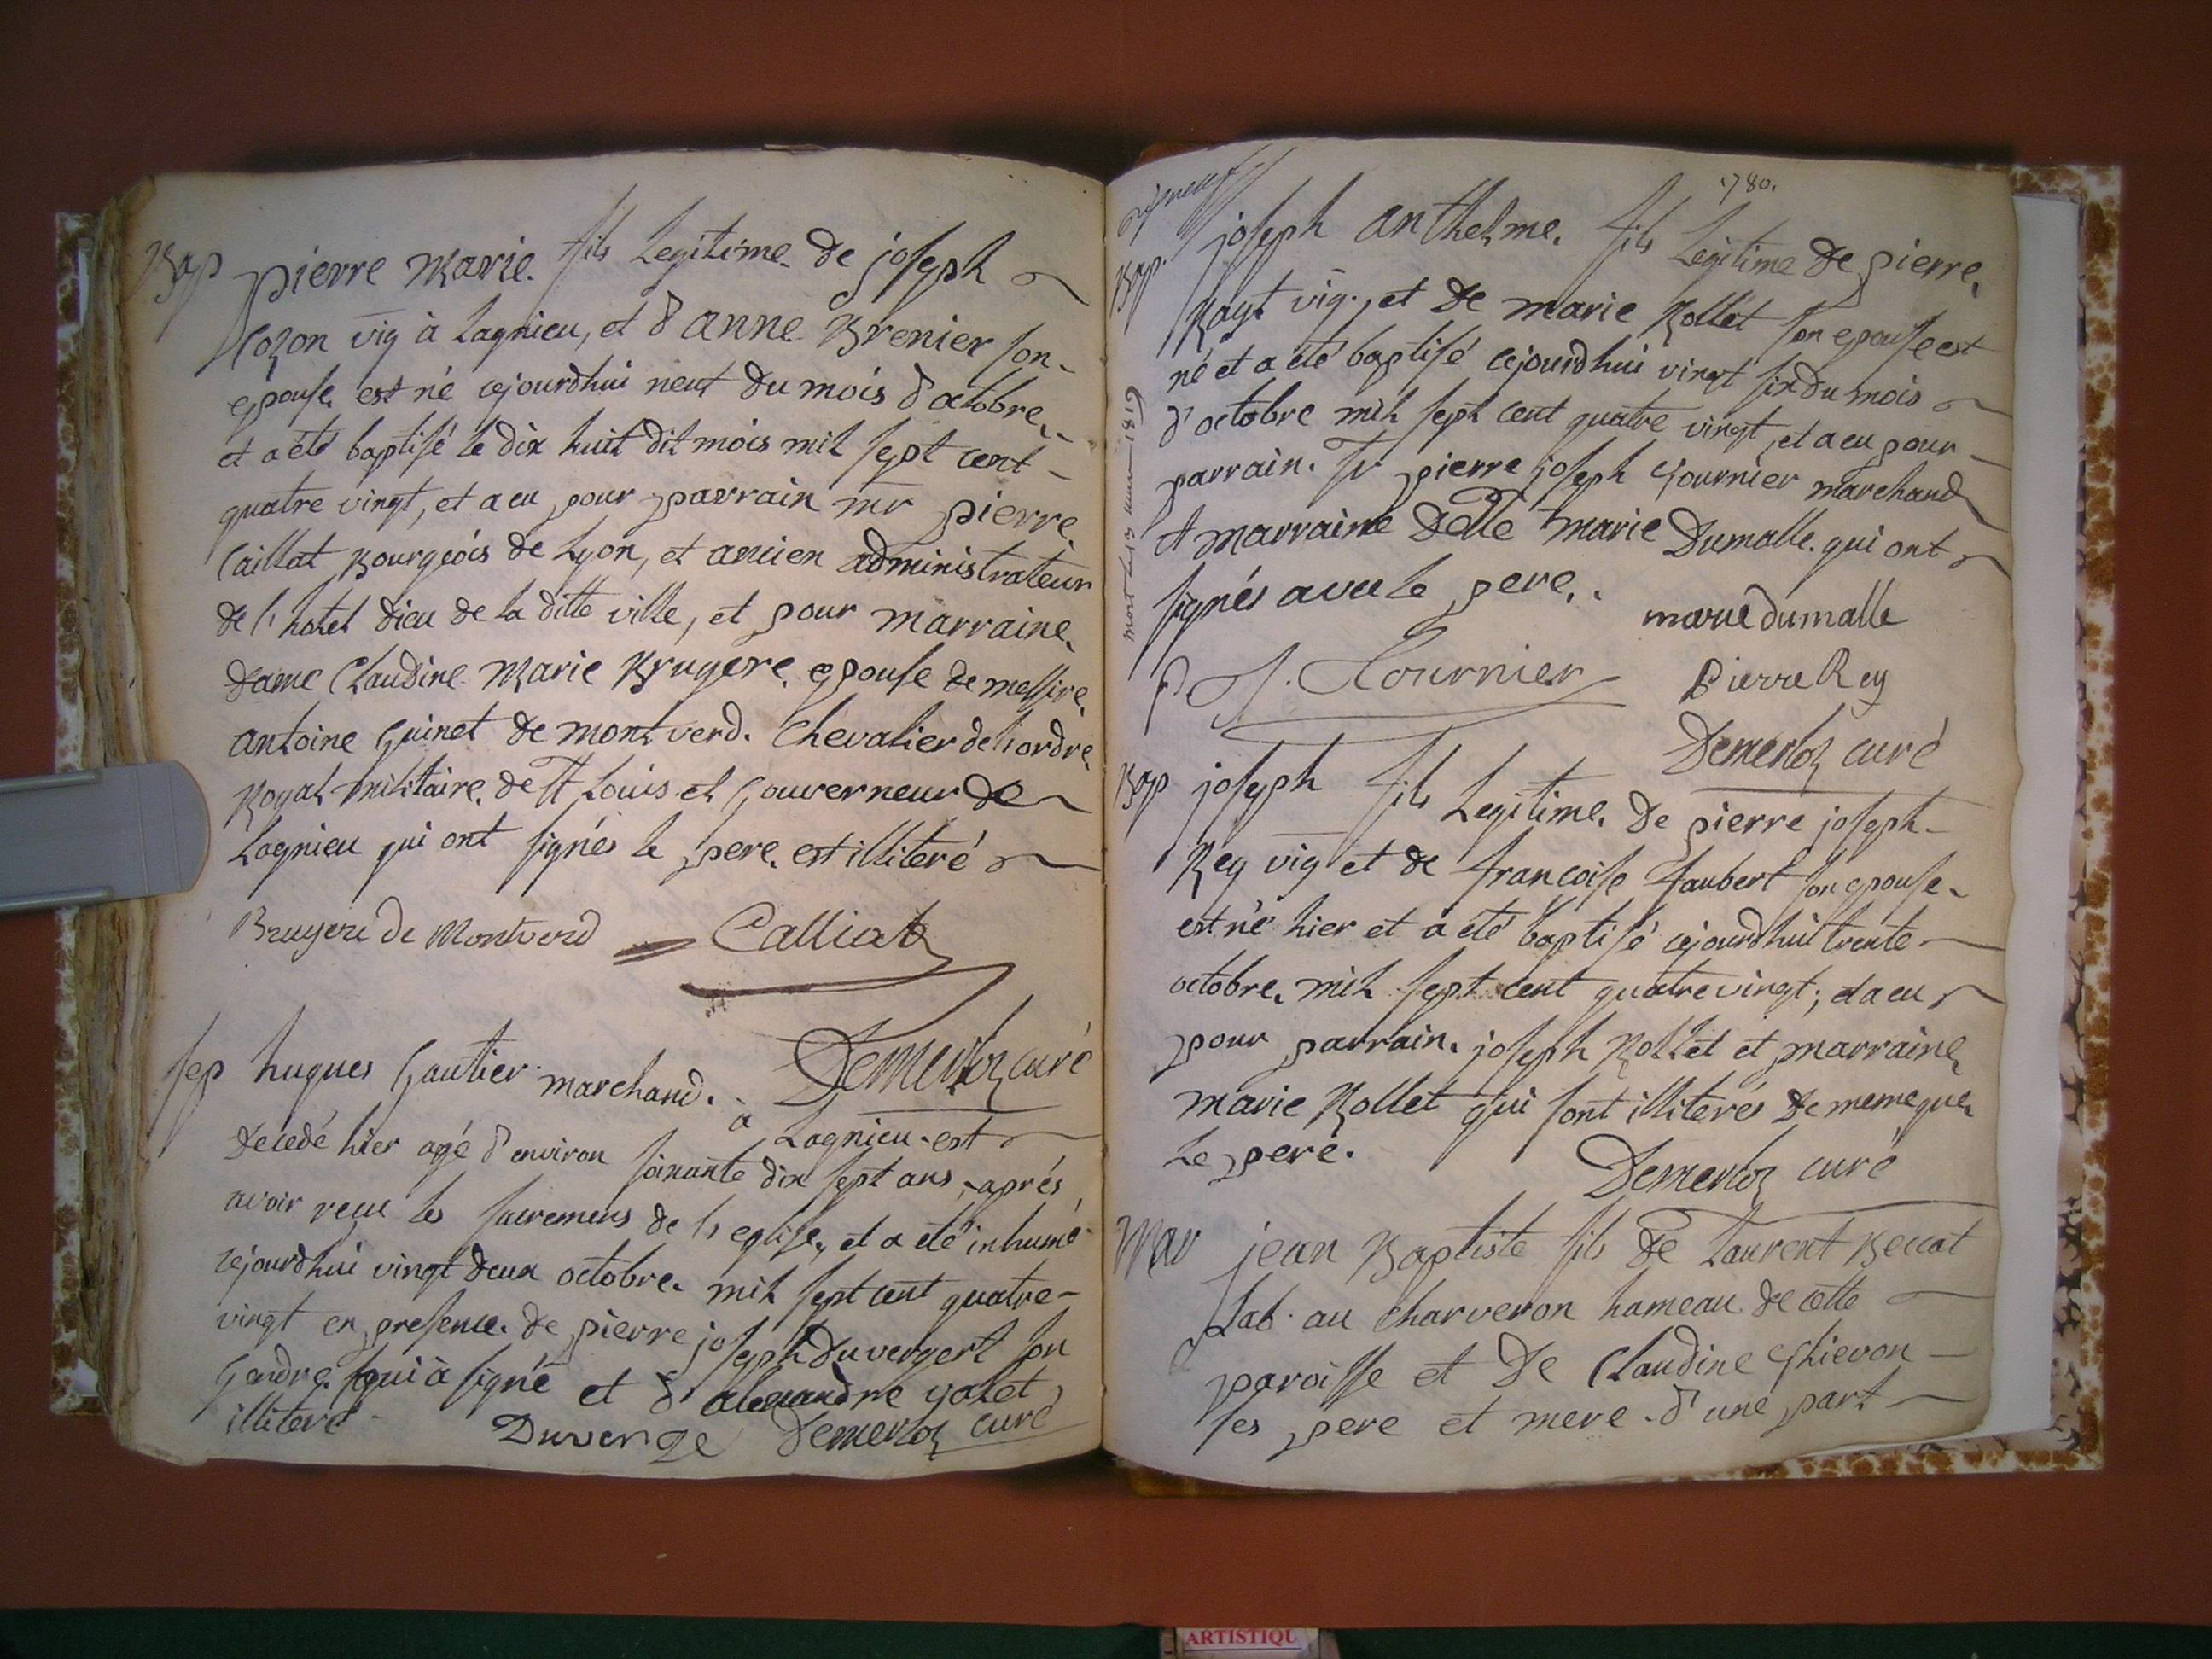 Bap pierre Marie. fils Legitime de joseph
Cozon vig à Lagnieu, et d'anne Brenier son
epouse est né cejourdhui neuf du mois d'octobre
et a été baptisé le dix huit dit mois mil sept cent
quatre vingt, et a eu pour parrain mr pierre
Caillat Bourgeois de Lyon, et ancien administrateur
de l'hotel dieu de la ditte ville, et pour marraine
dame Claudine Marie Brugere epouse de messire
antoine Guinet de montverd. Chevalier de l'ordre
Royal militaire de St Louis et Gouverneur de
Lagnieu qui ont signés le pere est illiteré
Bruyere de Montverd Calliat
Demerloz curé
sep hugues Gautier marchand. à Lagnieu est
decedé hier agé d'environ soixante dix sept ans, aprés
avoir reçu les sacremens de l'eglise, et a été inhumé
cejourdhui vingt deux octobre mil sept cent quatre
vingt en presence de pierre joseph duvergert son
Gendre qui à signé et d'alexandre
illiteré Duverge Demerloz curé
1780.
dix neuf
Bap. joseph anthelme. fils Legitime de pierre
Rayt vig. et de marie Rollet son epouse est
né et a été baptisé cejourdhui vingt six du mois
d'octobre mil sept cent quatre vingt, et a eu pour
parrain. Sr pierre joseph fournier marchand
et marraine Delle marie Dumalle. qui ont
signés avec le pere.
mort le 13 1819
marie dumalle
P J. Fournier Pierre Rey
Demerloz curé
Bap joseph fils Legitime de pierre joseph
Rey vig et de francoise Jaubert son epouse
est né hier et a été baptisé cejourdhui trente
octobre mil sept cent quatre vingt; et a eu
pour parrain joseph Rollet et marraine
marie Rollet qui sont illiterés de meme que
Le pere.
Demerloz curé
Mar jean Baptiste fils de Laurent Beccat
Lab. au Charveron hameau de cette
paroisse et de Claudine
ses pere et mere d'une part
ARTISTIQU